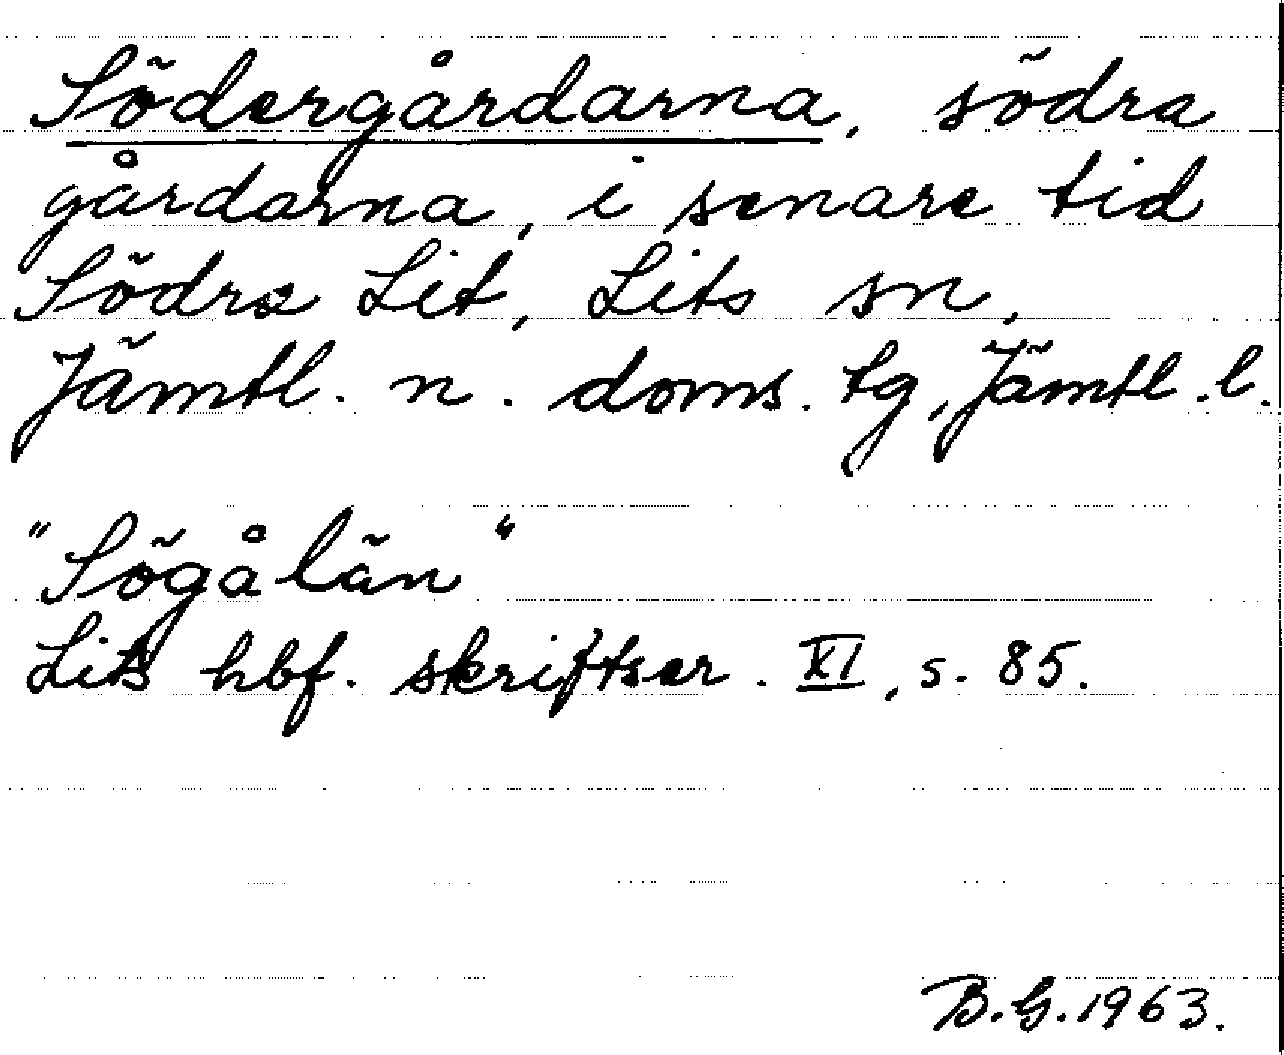 Södergårdarna, södra
gårdarna, i senare tid
Södra Lit, Lits sn,
Jämtl. n. doms. tg, Jämtl. l.
"Sögålän"
Lits hbf. skriftser. XI, s. 85.
B.G. 1963.